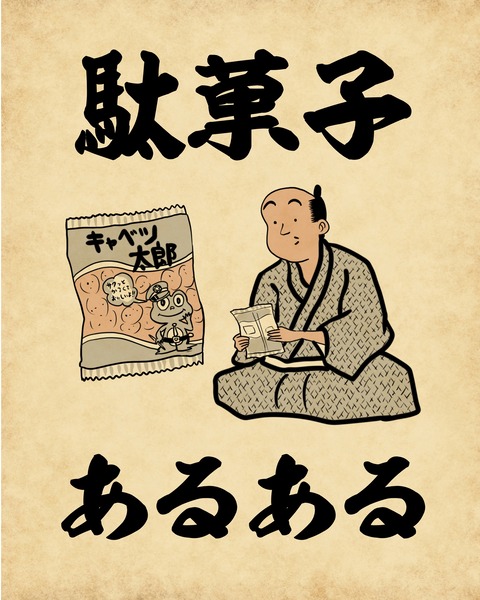 駄菓子
キャベツ
太郎
サクッと
かるくて
おいしいよ!!
あるある